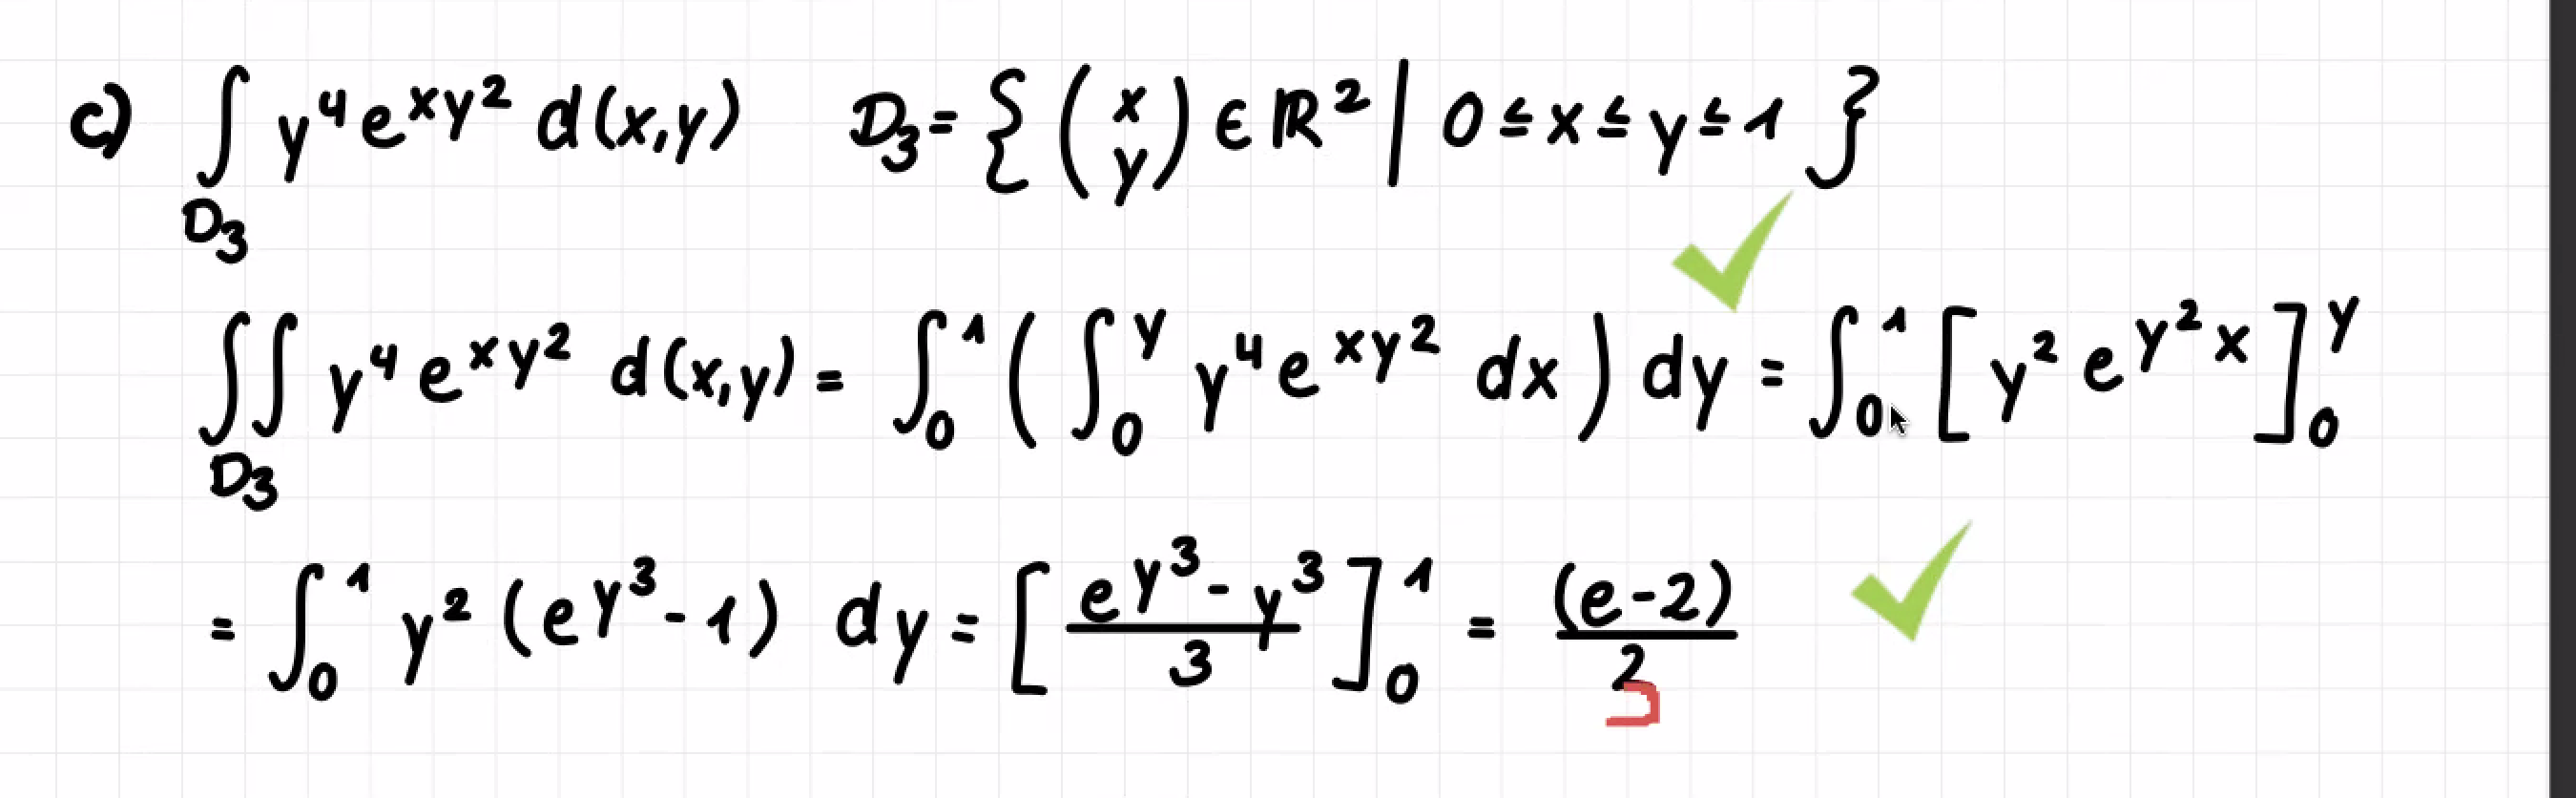 c) ∫_{D₃} y⁴ e^{xy²} d(x,y)   D₃ = { (x y) ∈ ℝ² | 0 ≤ x ≤ y ≤ 1 }
∬_{D₃} y⁴ e^{xy²} d(x,y) = ∫₀¹ ( ∫₀^y y⁴ e^{xy²} dx ) dy = ∫₀¹ [ y² e^{y²x} ]₀^y
= ∫₀¹ y² (e^{y³} - 1) dy = [ (e^{y³} - y³)/3 ]₀¹ = (e-2)/2